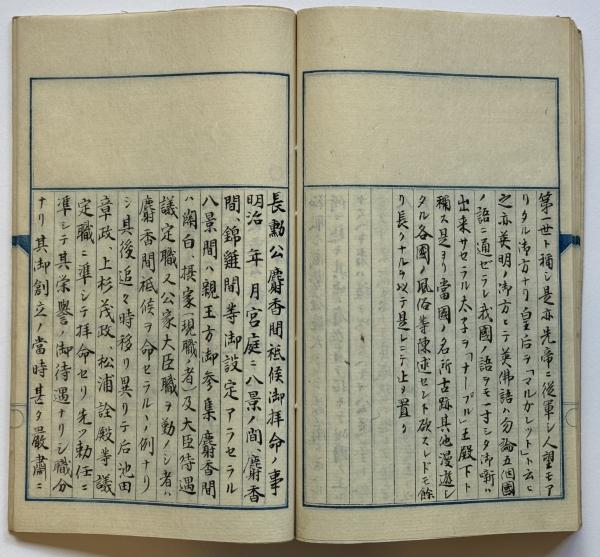 第一世ト称シ是亦先帝ニ従軍シ人望モア
リタル御方ナリ皇后ヲ「マルガレット」ト云ヒ
之亦英明ノ御方ニテ英佛語ハ勿論五個國
ノ語ニ通ゼラレ我國ノ語ヲモ一寸シタ御噺ハ
出来サセラル太子ヲ「ナープル」王殿下ト
稱ス是ヨリ當國ノ名所古跡其他漫遊シ
タル各國ノ風俗等陳述セント欲スレドモ餘
リ長クナルヲ以テ是レニテ止メ置ク
長勳公麝香間祗候御拝命ノ事
明治 年 月宮庭ニ八景ノ間、麝香
間、錦雞間等御設定アラセラル
八景間ハ親王方御参集麝香間
ハ関白、摂家ノ現職ノ者及大臣待遇
議定職又公家大臣職ヲ勤メシ者ハ
麝香間祗候ヲ命セラルヽノ例ナリ
シ其後追々時移リ異リテ后池田
章政、上杉茂政、松浦詮殿等議
定職ニ準シテ拝命セリ先ツ勅任ニ
準シテ其栄譽ノ御待遇ナリシ職分
ナリ其御創立ノ當時甚タ嚴肅ニ